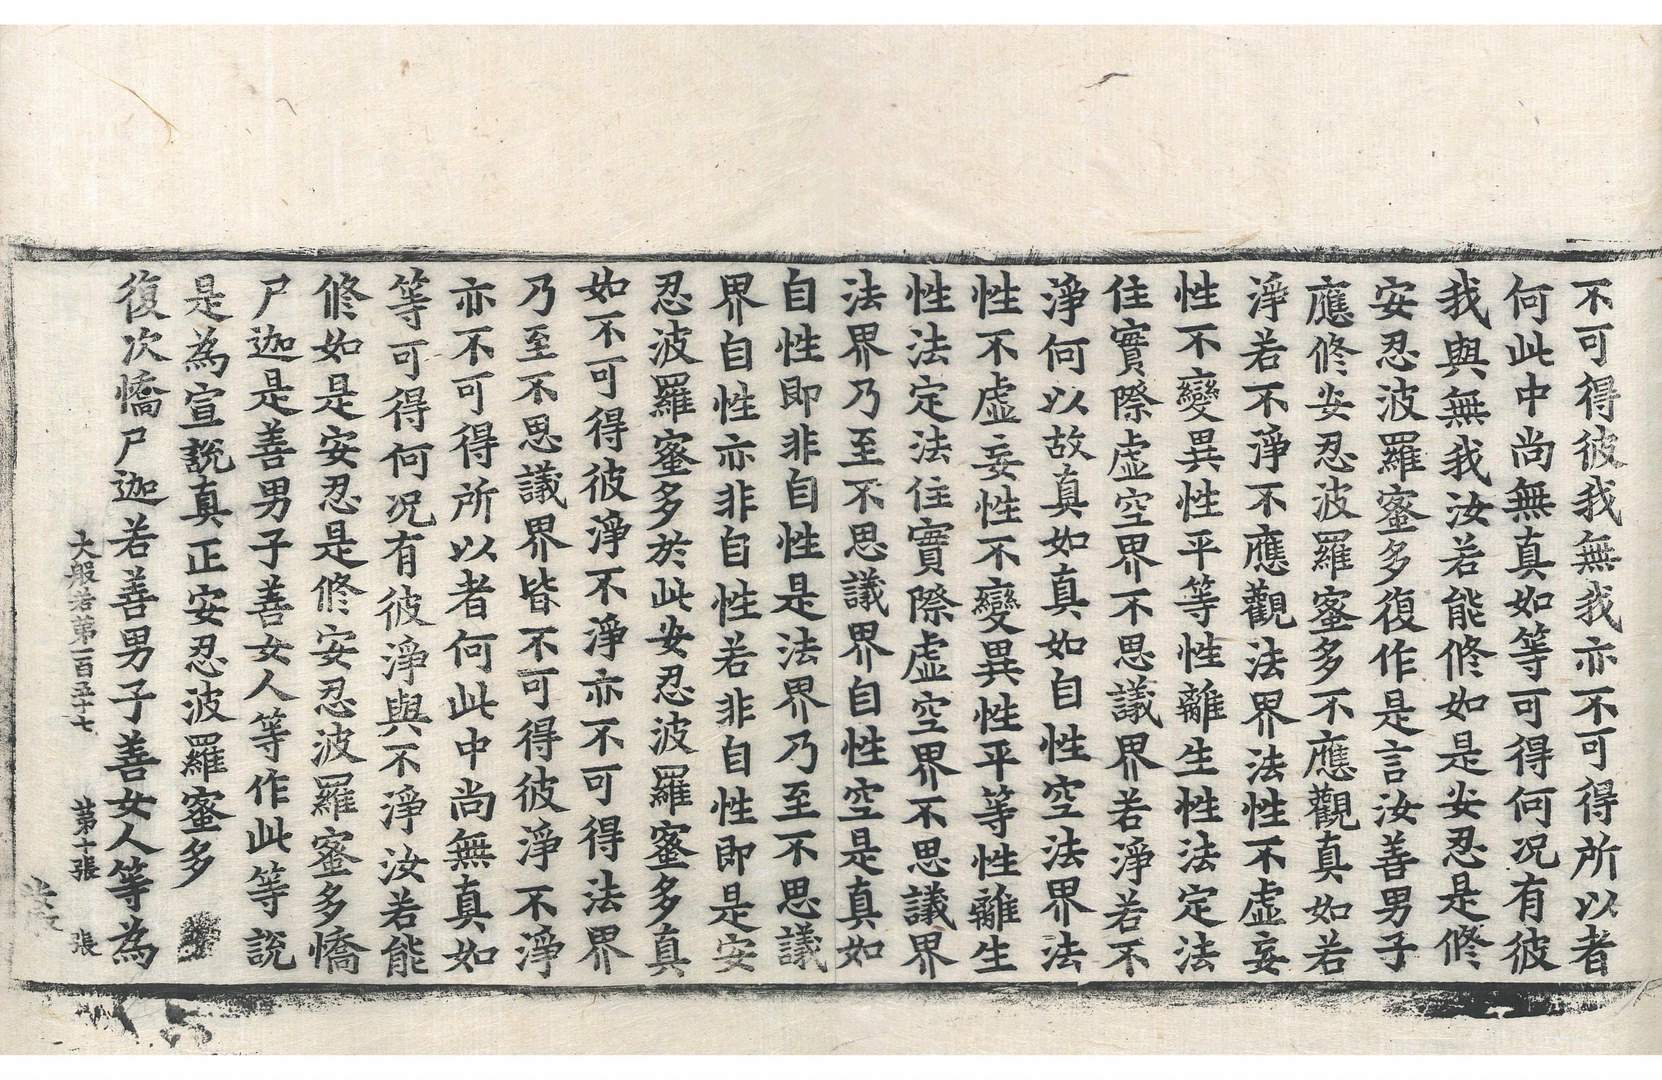 不可得彼我無我亦不可得所以者
何此中尚無真如等可得何況有彼
我與無我汝若能修如是安忍是修
安忍波羅蜜多復作是言汝善男子
應修安忍波羅蜜多不應觀真如若
淨若不淨不應觀法界法性不虛妄
性不變異性平等性離生性法定法
住實際虛空界不思議界若淨若不
淨何以故真如真如自性空法界法
性不虛妄性不變異性平等性離生
性法定法住實際虛空界不思議界
法界乃至不思議界自性空是真如
自性即非自性是法界乃至不思議
界自性亦非自性若非自性即是安
忍波羅蜜多於此安忍波羅蜜多真
如不可得彼淨不淨亦不可得法界
乃至不思議界皆不可得彼淨不淨
亦不可得所以者何此中尚無真如
等可得何況有彼淨與不淨汝若能
修如是安忍是修安忍波羅蜜多憍
尸迦是善男子善女人等作此等說
是為宣說真正安忍波羅蜜多
復次憍尸迦若善男子善女人等為
大般若第一百五十七 第十張 張